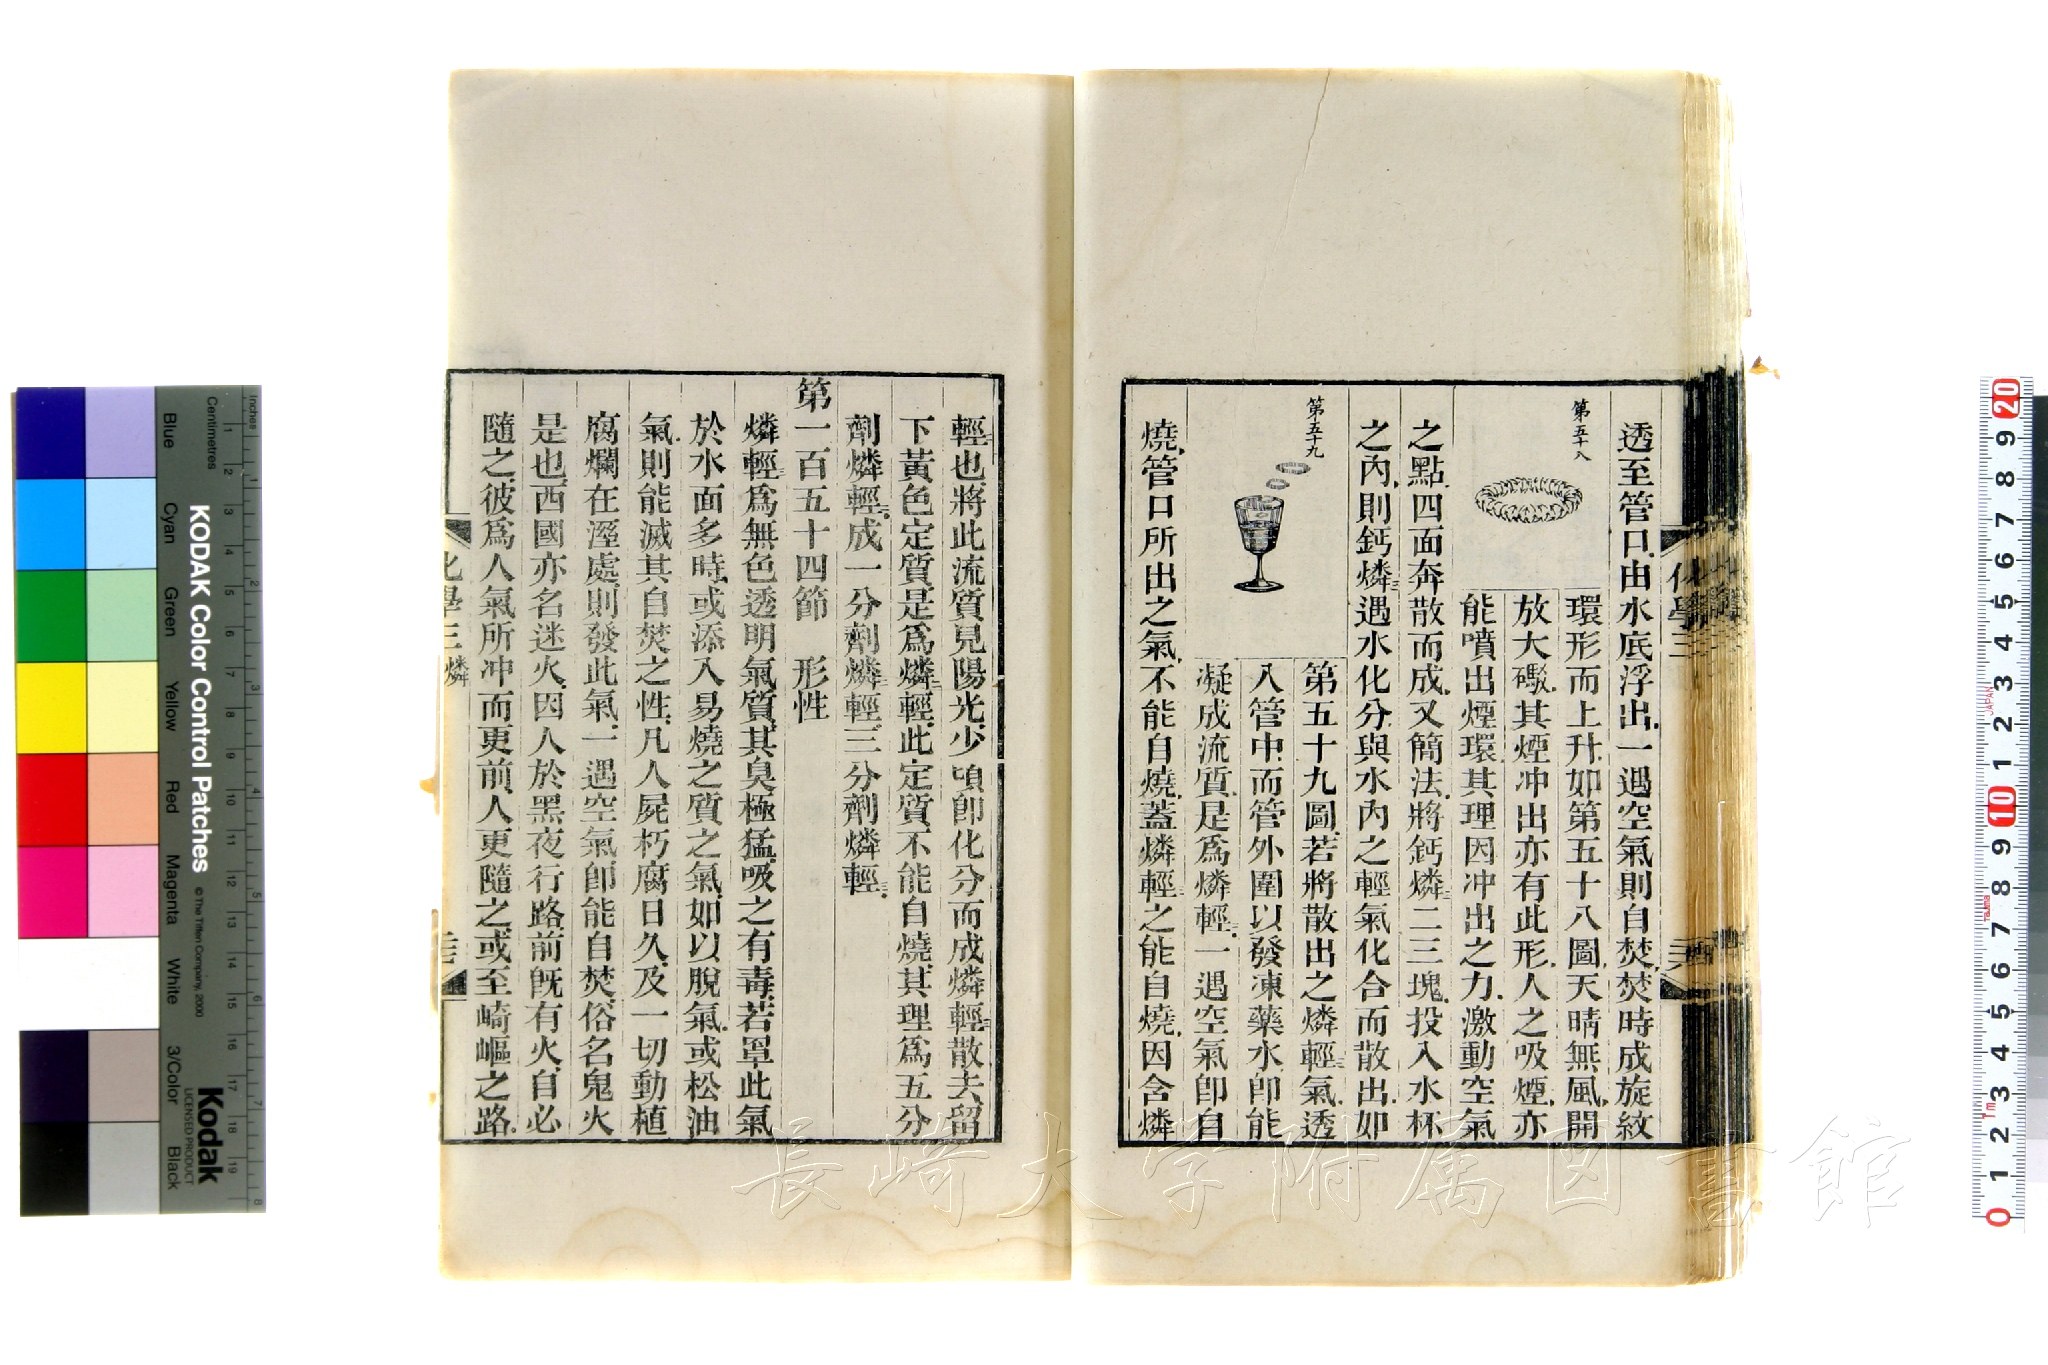 透至管口、由水底浮出、一遇空氣則自焚、焚時成旋紋
第五十八
環形而上升、如第五十八圖、天晴無風、開
放大礮、其煙冲出亦有此形、人之吸煙、亦
能噴出煙環、其理因冲出之力、激動空氣
之點、四面奔散而成、又簡法、將鈣燐二三塊、投入水杯
之內、則鈣燐遇水化分、與水內之輕氣化合而散出、如
第五十九
第五十九圖、若將散出之燐輕三氣、透
入管中、而管外圍以發凍藥水、卽能
凝成流質、是爲燐輕二、一遇空氣卽自
燒、管口所出之氣、不能自燒、蓋燐輕三之能自燒、因含燐
化學三
輕二也、將此流質見陽光、少頃卽化分而成燐輕三散去、留
下黃色定質、是爲燐二輕、此定質不能自燒、其理爲五分
劑燐輕二、成一分劑燐二輕、三分劑燐輕三、
第一百五十四節　形性
燐輕三爲無色透明氣質、其臭極猛、吸之有毒、若罩此氣
於水面多時、或添入易燒之質之氣、如以脫氣、或松油
氣、則能滅其自焚之性、凡人屍朽腐日久、及一切動植
腐爛在溼處、則發此氣、一遇空氣卽能自焚、俗名鬼火
是也、西國亦名迷火、因人於黑夜行路、前旣有火、自必
隨之、彼爲人氣所冲而更前、人更隨之、或至崎嶇之路、
化學三 燐
長崎大学附属図書館
KODAK Color Control Patches
© The Tiffen Company, 2000
Kodak
LICENSED PRODUCT
Blue
Cyan
Green
Yellow
Red
Magenta
White
3/Color
Black
Inches
Centimetres
JAPAN